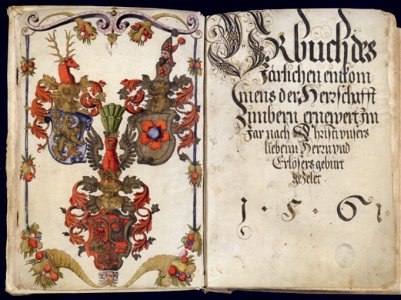 Urbuch des
Järlichen einkom
mens der Herrschafft
Zimbern ernewert im
Jar nach Christi vnsers
liebenn Herrn vnd
Erlösers geburt
gezelet
1 5 6 1